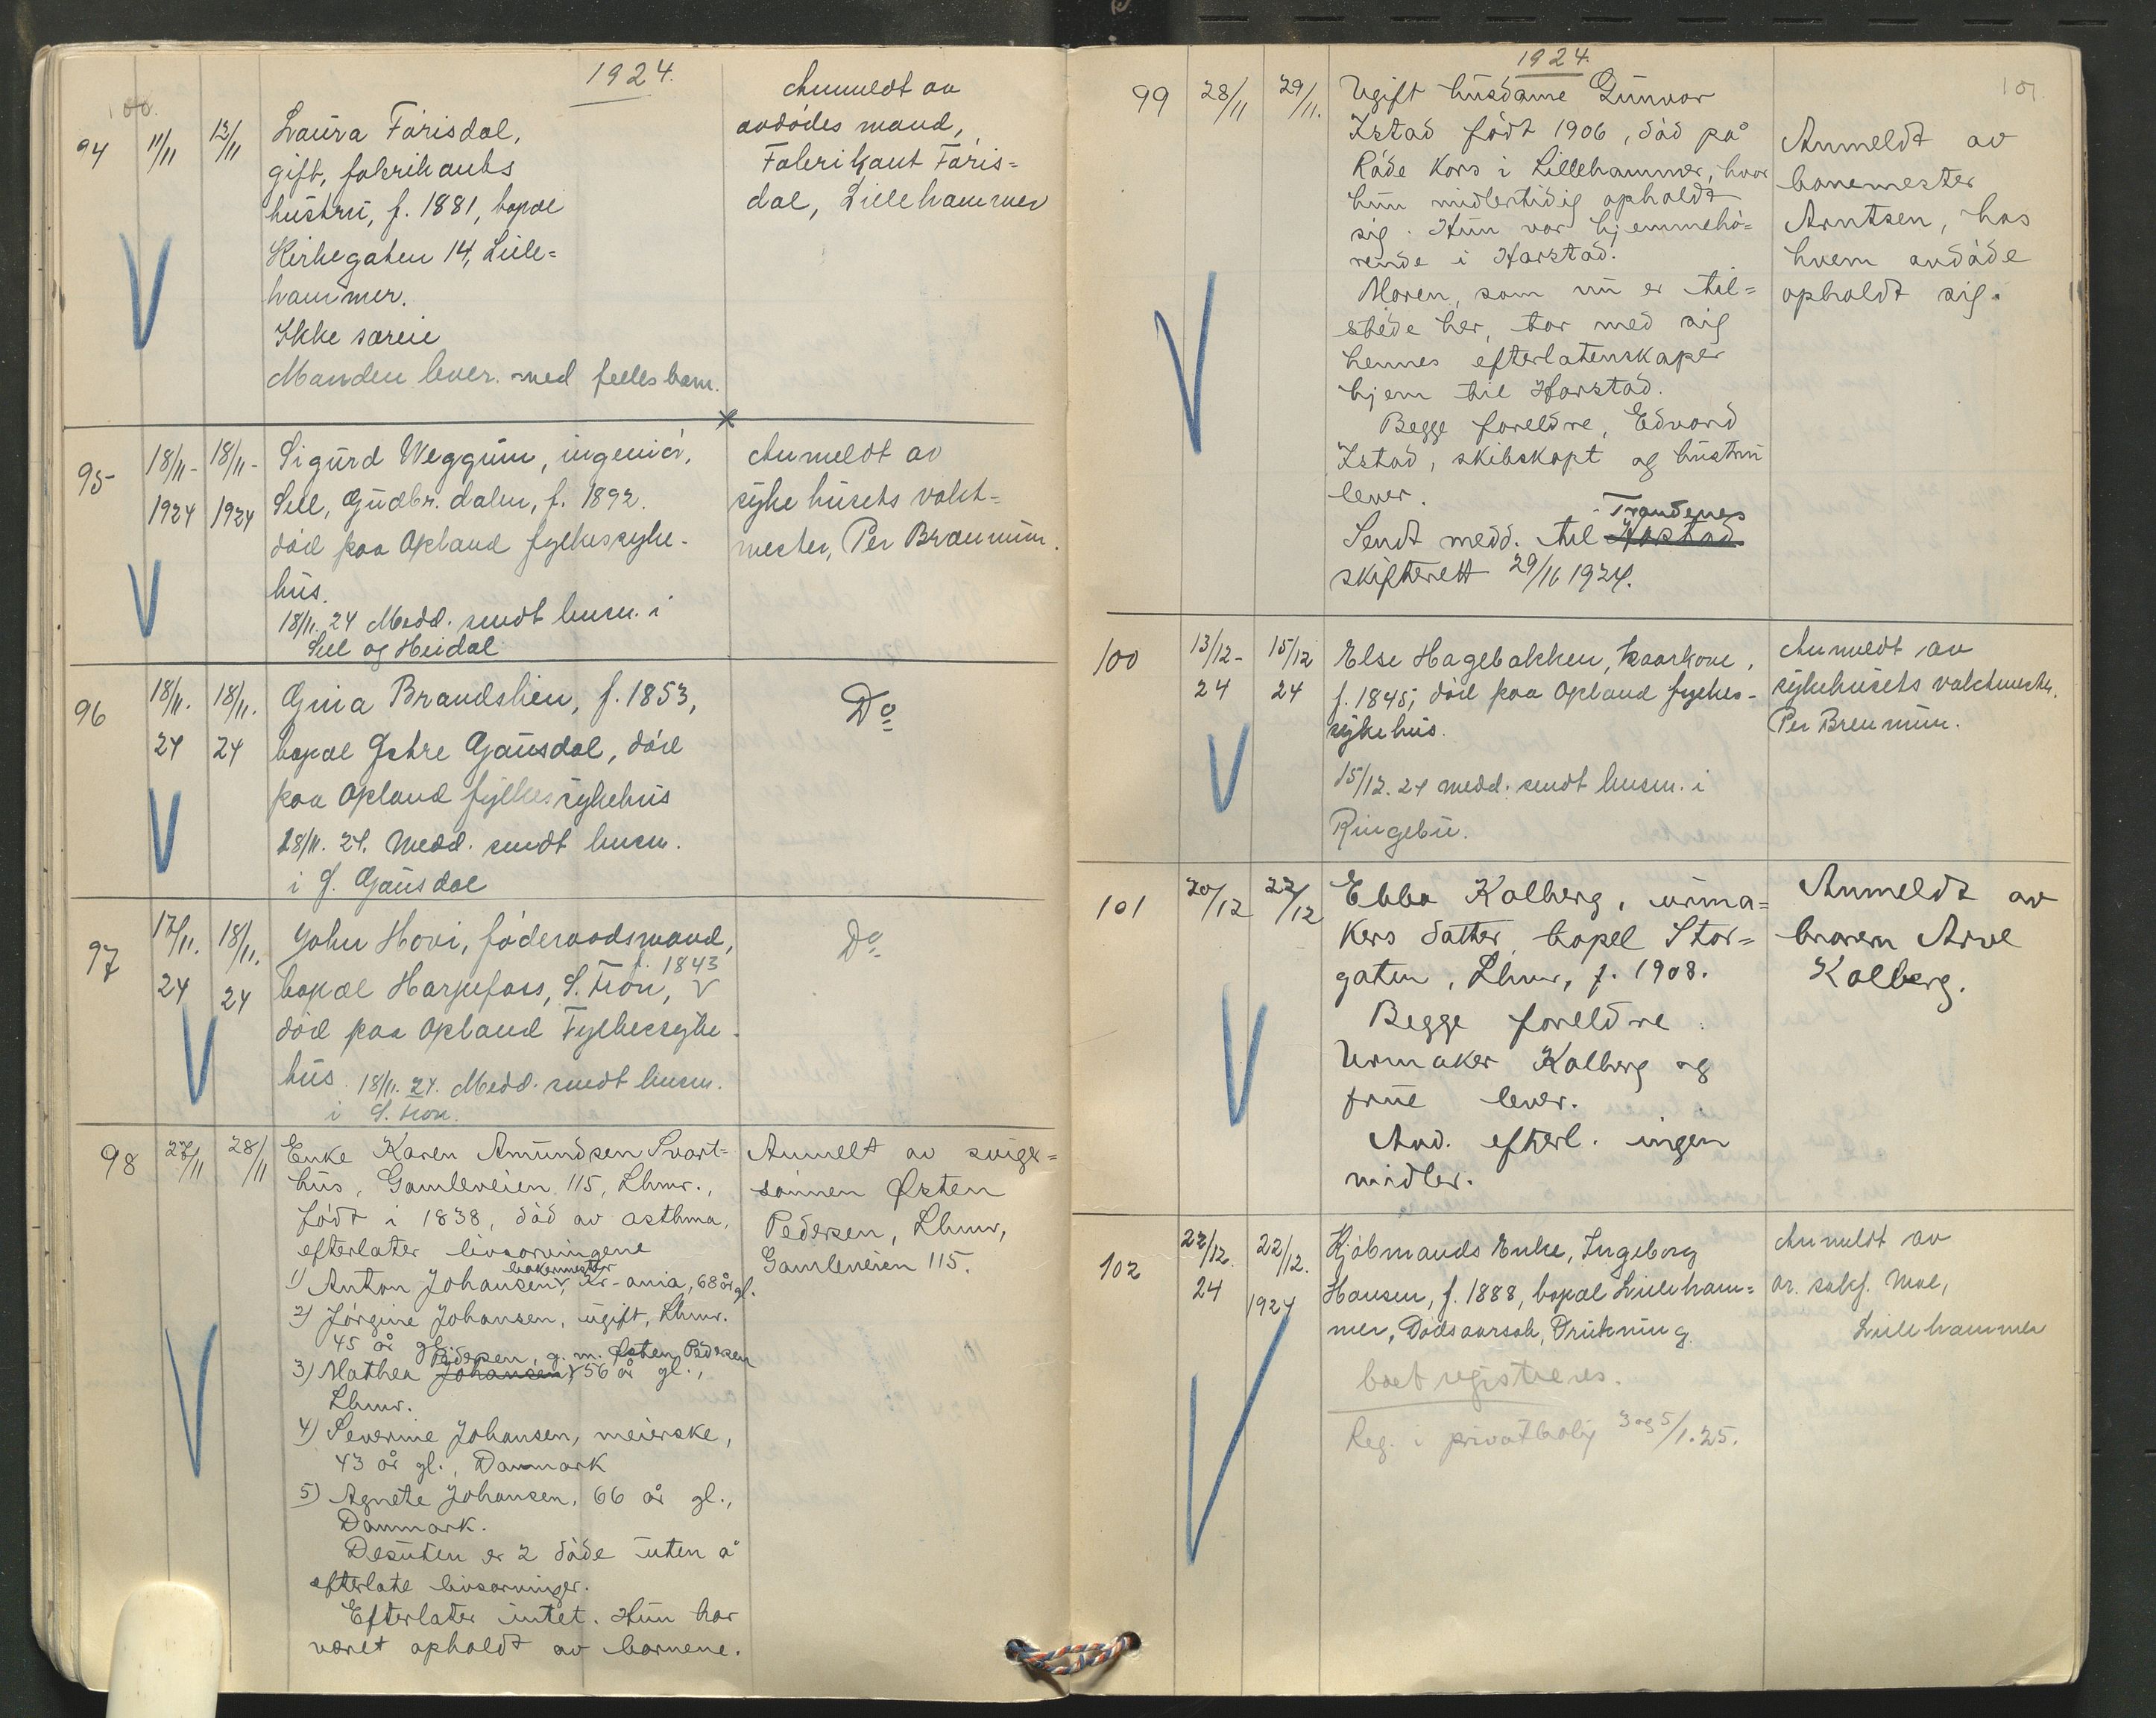 1924.
100.
94 11/11 12/11 Laura Fårisdal,
gift, fabrikants
hustru, f. 1881, bopæl
Kirkegaten 14, Lille=
hammer.
Ikke særeie
Manden lever. med felles barn.
Anmeldt av
avdødes mand,
Fabrikant Fåris=
dal, Lillehammer
95 18/11- 1924 18/11- 1924 Sigurd Weggum, ingeniør,
Sell, Gudbr. dalen, f. 1892.
død paa Opland fylkessyke-
hus.
18/11. 24 Medd. sendt lensm. i
Sel og Heidal
Anmeldt av
sykehusets vakt=
mester, Per Brenmum.
96 18/11. 24 18/11. 24 Gina Brandslien, f. 1853,
bopæl Østre Gausdal, død
paa Opland fylkessykehus
18/11. 24. Medd. sendt lensm.
i Ø. Gausdal
Do
97 17/11. 24 18/11. 24 John Hovi, føderaadsmand,
f. 1843
bopæl Harpefoss, S. Fron,
død paa Opland Fylkessyke-
hus. 18/11. 24. Medd. sendt lensm.
i S. Fron.
Do
98 27/11 28/11 Enke Karen Amundsen Svart=
hus, Gamleveien 115, Lhmr.,
født i 1838, død av asthma,
efterlater livsarvingene
bakermester
1) Anton Johansen, Kr-ania, 68 år gl.
2) Jørgine Johansen, ugift, Lhmr.
45 år gl.
Pedersen, g. m. Østen Pedersen
3) Mathea Johansen, 56 år gl.,
Lhmr.
4) Severine Johansen, meierske,
43 år gl., Danmark
5) Agnete Johansen, 66 år gl.,
Danmark.
Desuten er 2 døde uten å
efterlate livsarvinger.
Efterlater intet. Hun har
været opholdt av barnene.
Anmelt av sviger=
sønnen Østen
Pedersen, Lhmr,
Gamleveien 115.
1924.
101.
99 28/11 29/11. Ugift husdame Gunvor
Istad født 1906, død på
Røde Kors i Lillehammer, hvor
hun midlertidig opholdt
sig. Hun var hjemmehø=
rende i Harstad.
Moren, som nu er til=
stede her, tar med sig
hennes efterlatenskaper
hjem til Harstad.
Begge foreldre, Edvard
Istad, skibskapt og hustru
lever.
Trondenes
Sendt medd. til Harstad
skifterett 29/11 1924.
Anmeldt av
banemester
Arntsen, hos
hvem avdøde
opholdt sig.
100 13/12- 24 15/12 24 Else Hagebakken, kaarkone,
f. 1845, død paa Opland fylkes-
sykehus.
15/12. 24 medd. sendt lensm. i
Ringebu.
Anmeldt av
sykehusets vaktmester.
Per Brenmum.
101 20/12 22/12 Ebba Kalberg, urma=
kers datter, bopel Stor=
gaten, Lhmr, f. 1908.
Begge foreldre
Urmaker Kalberg og
frue lever.
Avd. efterl. ingen
midler.
Anmeldt av
broren Arve
Kalberg.
102 22/12. 24 22/12. 1924 Kjøbmands Enke, Ingeborg
Hansen, f. 1888, bopæl Lilleham=
mer, Dødsaarsak, Drukning.
boet registreres.
Reg. i privatbolig 3 og 5/1. 25.
Anmeldt av
or. sakf. Moe,
Lillehammer